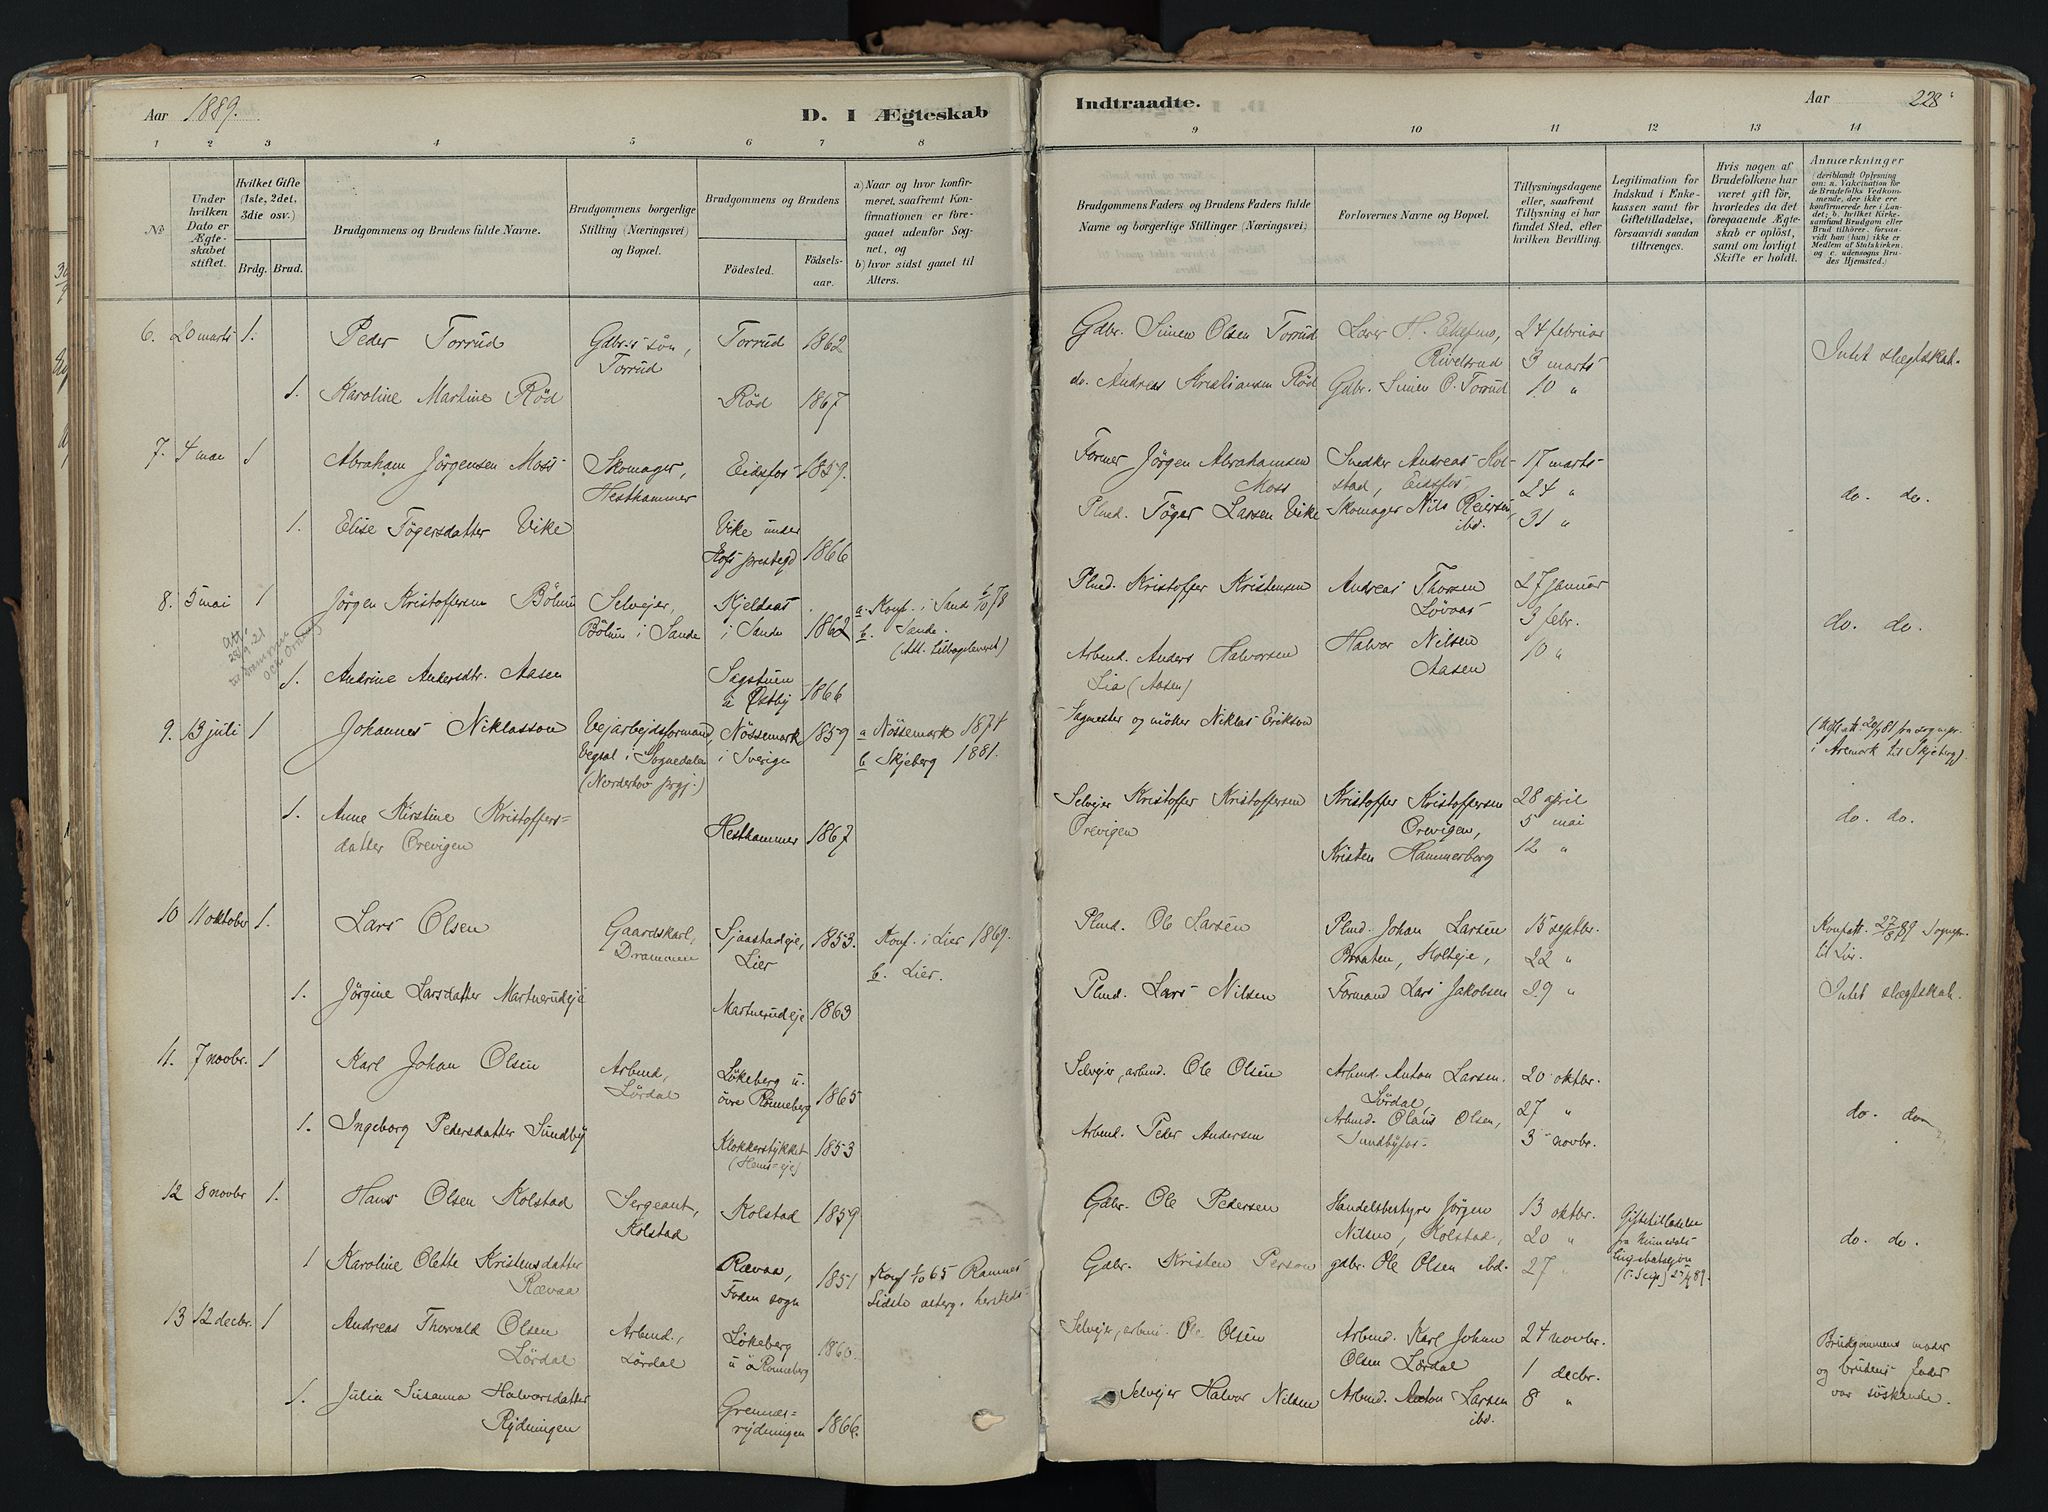 Aar 1889.
D. I Ægteskab
Indtraadte.
Aar 228
1 2 3 4 5 6 7 8
9 10 11 12 13 14
No.
Under hvilken Dato er Ægteskabet stiftet.
Hvilket Gifte (1ste, 2det, 3die osv.)
Brdg. Brud.
Brudgommens og Brudens fulde Navne.
Brudgommens borgerlige Stilling (Næringsvei) og Bopæl.
Brudgommens og Brudens
Fødested.
Fødselsaar.
a) Naar og hvor konfirmeret, saafremt Konfirmationen er foregaaet udenfor Sognet, og
b) hvor sidst gaaet til Alters.
Brudgommens Faders og Brudens Faders fulde Navne og borgerlige Stillinger (Næringsvei)
Forlovernes Navne og Bopæl.
Tillysningsdagene eller, saafremt Tillysning ei har fundet Sted, efter hvilken Bevilling.
Legitimation for Indskud i Enkekassen samt for Giftetilladelse, forsaavidt saadan tiltrænges.
Hvis nogen af Brudefolkene har været gift før, hvorledes da det foregaaende Ægteskab er opløst, samt om lovligt Skifte er holdt.
Anmærkninger (deriblandt Oplysning om: a. Vakcination for de Brudefolks Vedkommende, der ikke ere konfirmerede her i Landet; b. hvilket Kirkesamfund Brudgom eller Brud tilhører, forsaavidt han (hun) ikke er Medlem af Statskirken, og c. udensogns Brudes Hjemsted.)
6. 20 marts 1. Peder Torrud
Gdbr.s søn, Torrud
Torrud 1862
Gdbr. Simen Olsen Torrud
Rivelsrud
24 februar
3 marts
10 "
Intet slegtskab.
1. Karoline Martine Röd
Röd 1867
do. Andreas Kristiansen Röd
Gdbr. Simen O. Torrud
7. 4 mai 1 Abraham Jörgensen Moss
Skomager, Hesthammer
Eidsfos 1859.
Former Jörgen Abrahamsen Moss
Snedker Andreas Holstad, Eidsfos
17 marts
24 "
31 "
do. do.
1. Elise Tögersdatter Vike
Vike under Hofs prestegd 1866
Plmd. Töger Larsen Vike
Skomager Nils Reiersen, ibd.
8. 5 mai 1 Jörgen Kristoffersen Bölum
Selveier, Bölum i Sande
Kjeldaas i Sande 1862
a. Konf. i Sande 6/10 78
b. Sande.
(Att. tilbageleveret)
Plmd. Kristoffer Kristensen
Andreas Thorsen Lövaas
27 januar
3 febr.
10 "
do. do.
Att. 28/9.21
1. Andrine Andersdtr. Aasen
Sagstuen u Østby 1866
Arbmd. Anders Halvorsen Lia (Aasen)
Halvor Nilsen Aasen
9. 13 juli 1 Johannes Niklasson
Vejarbejdsformand, Vegsal i Sognedalen (Norderhov prgj.)
Nössemark i Sverige 1859
a Nössemark 1874
b Skjeberg 1881.
Sagmester og möller Niklas Erikson
i Aremark til Skjeberg).
1. Anne Kirstine Kristoffersdatter Orevigen
Hesthammer 1867
Selvejer Kristoffer Kristoffersen Orevigen
Kristoffer Kristoffersen Orevigen,
Kristen Hammerborg
28 april
5 mai
12 "
do. do.
10 11 oktober 1. Lars Olsen
Gaardskarl, Drammen
Sjaastadeje, Lier 1853.
Konf. i Lier 1869.
b. Lier.
Plmd. Ole Larsen
Plmd. Johan Larsen Braaten, Holteje,
15 septbr.
22 "
29 "
Konfatt. 27/8 89 Sognepr. til Lier.
1. Jörgine Larsdatter Martnerudeje
Martnerudeje 1863
Plmd. Lars Nilsen
Formand Lars Jakobsen
Intet slegtskab.
11. 7 novbr. 1 Karl Johan Olsen
Arbmd, Lördal
Lökeberg u. övre Ronneberg 1865
Selvejer, arbmd. Ole Olsen
Arbmd. Anton Larsen. Lördal,
20 oktbr.
27 "
3 novbr.
do. do
1. Ingeborg Pedersdatter Sundby
Klokkerstykket (Hems-eje) 1853
Arbmd. Peder Andersen
Arbmd. Olaus Olsen, Sundbyfos
12 8 novbr 1. Hans Olsen Kolstad
Sergeant, Kolstad
Kolstad 1859
Gdbr. Ole Pedersen
Handelsbestyrer Jörgen Nilsen, Kolstad,
13 oktbr.
20 "
27 "
Giftetilladelse fra
do. do.
1 Karoline Olette Kristensdatter Rævaa
Rævaa, Foden sogn 1851
Konf 1/10 65 Ramnes
Sidste alterg. hersteds
Gdbr. Kristen Person
gdbr. Ole Olsen ibd.
13 12 decbr. 1 Andreas Thorvald Olsen Lördal
Arbmd., Lördal
Lökeberg u ö Ronneberg 1860.
Selvejer, arbmd. Ole Olsen
Arbmd. Karl Johan Olsen Lördal
24 novbr.
1 decbr.
8 "
Brudgommens moder og brudens fader var söskende.
1. Julia Susanna Halvorsdatter Rydningen
Grennesrydningen 1866.
Selvejer Halvor Nilsen
Arbmd. Anton Larsen ibd.